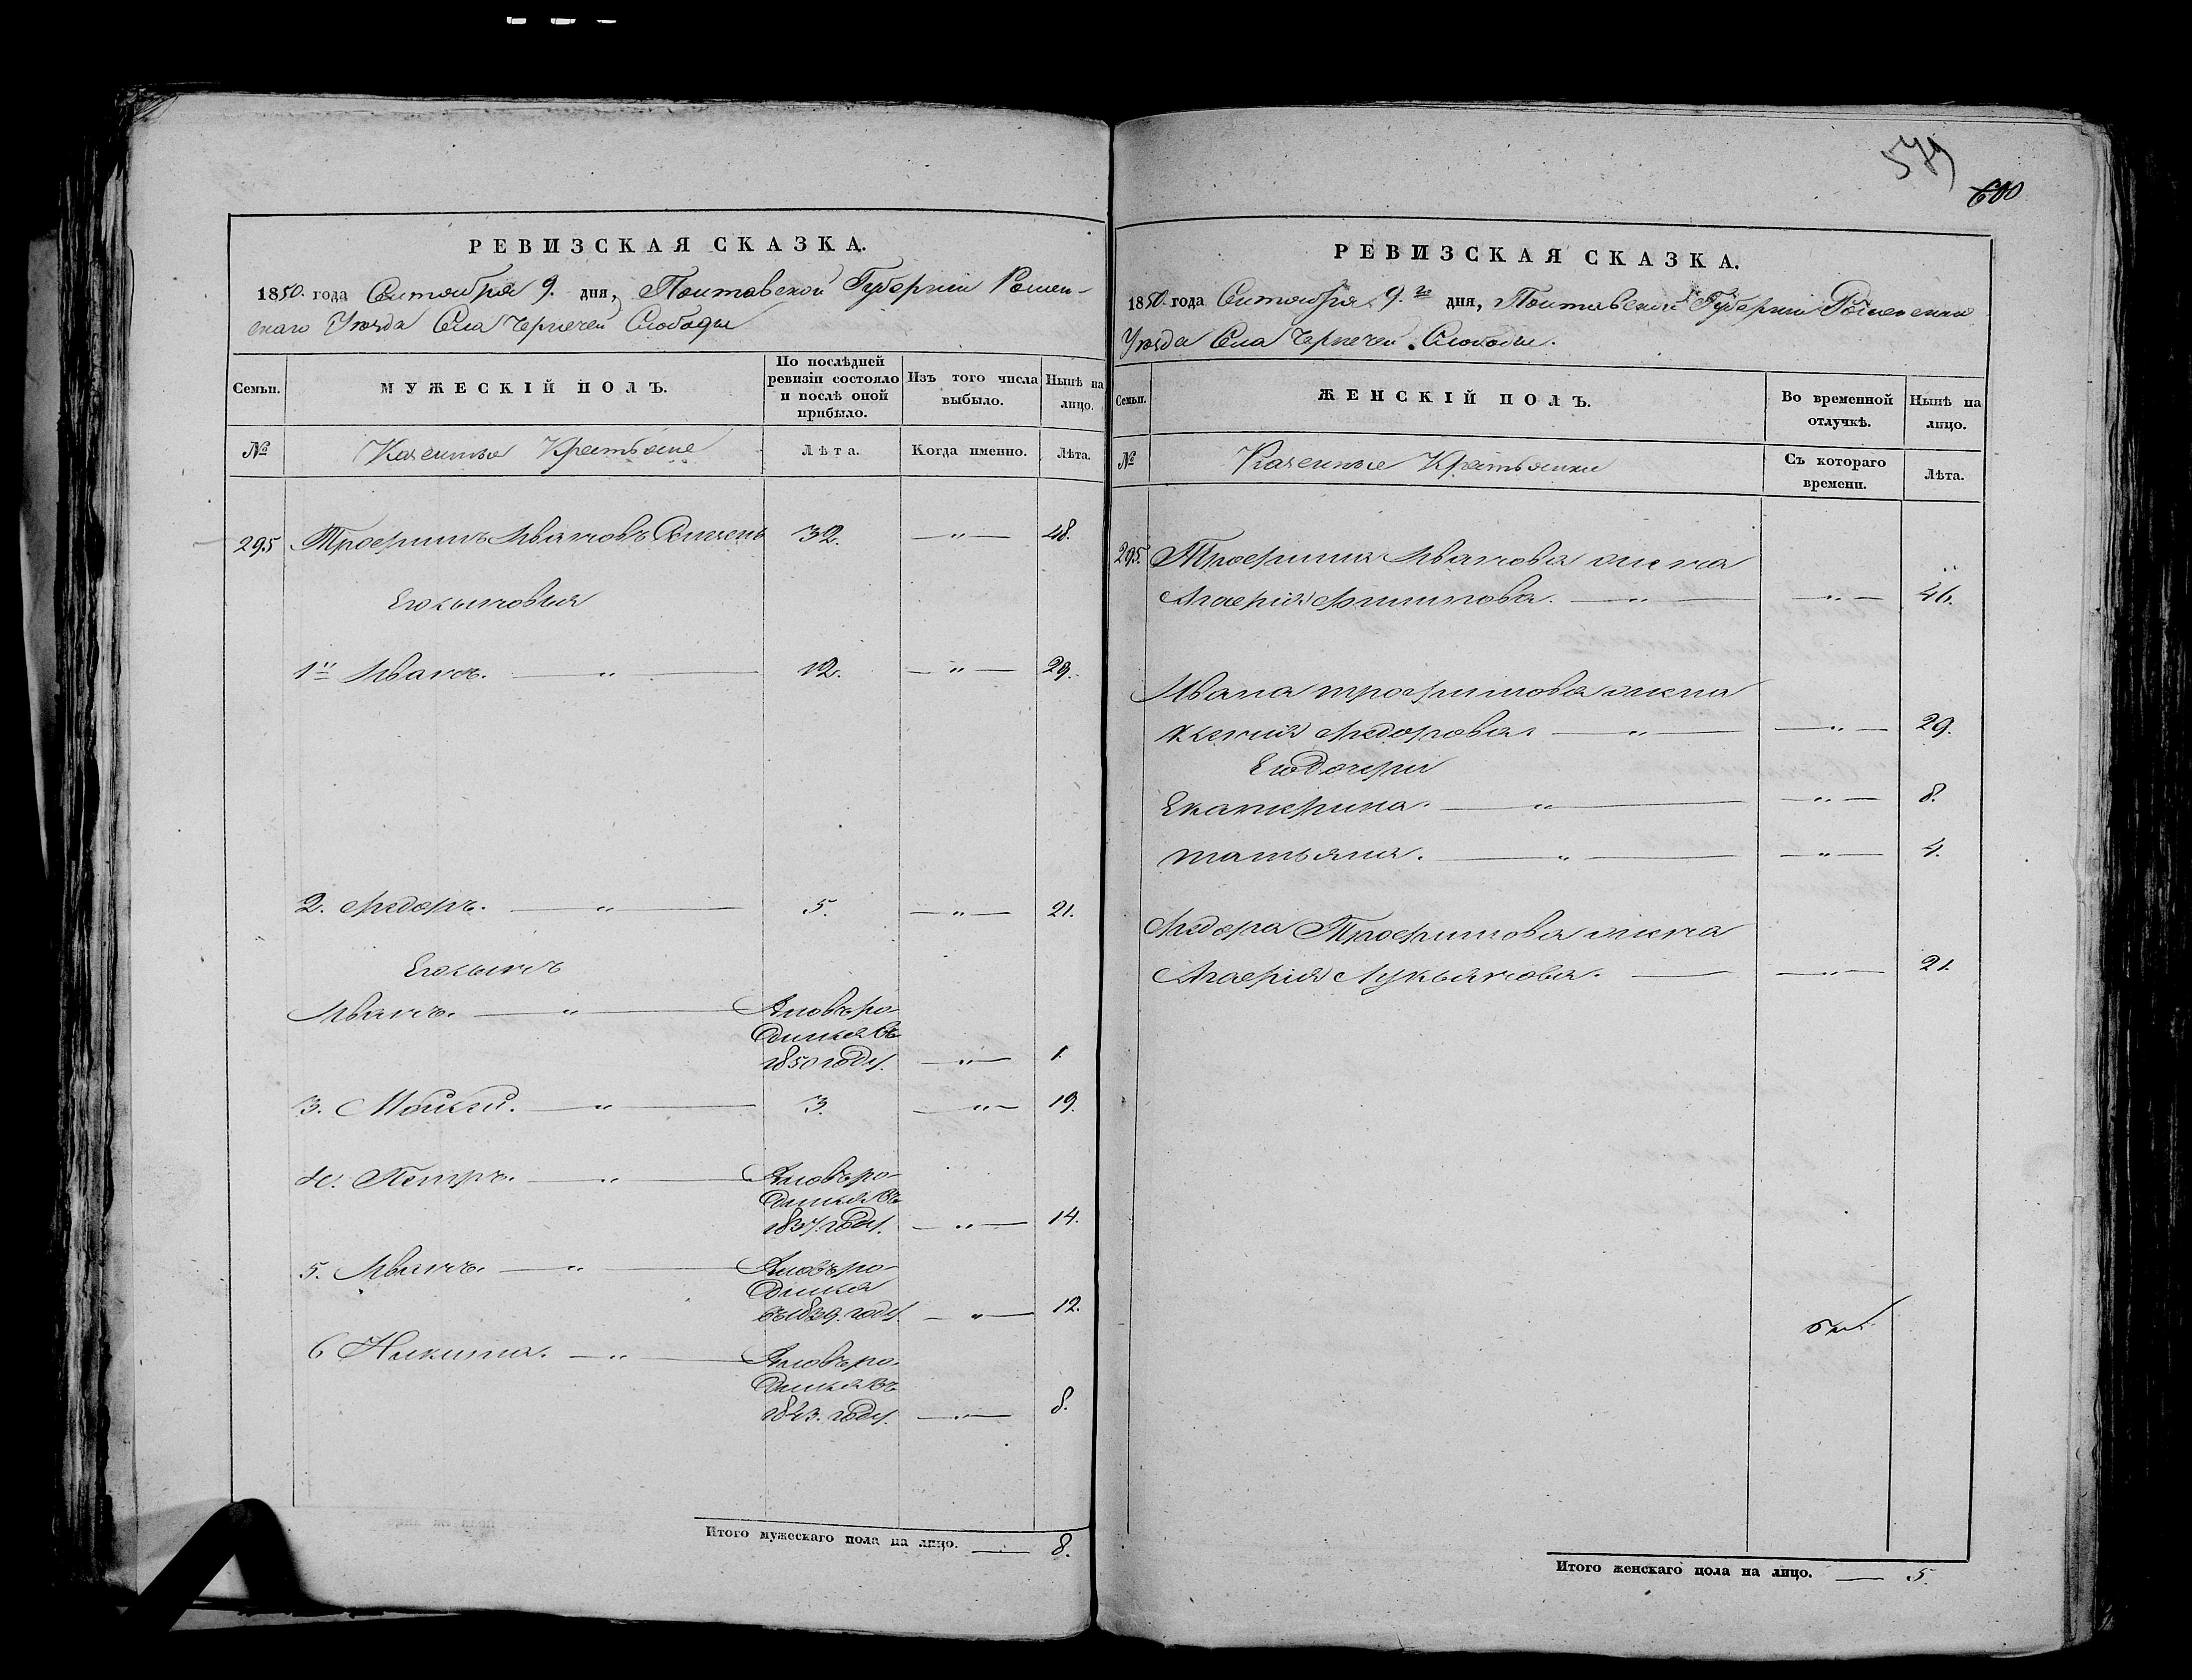 РЕВИЗСКАЯ СКАЗКА.
1850. года Сентября 9. дня, Полтавской Губерніи Ромен-
скаго Уезда Села Чернечей Слободы
Семьи.
МУЖЕСКІЙ ПОЛЪ.
По послѣдней ревизіи состояло и послѣ оной прибыло.
Изъ того числа выбыло.
Нынѣ на лицо.
№
Казенные Крестьяне
Лѣта.
Когда именно.
Лѣта.
295 Трофимъ Ивановъ 32. — " — 48.
Егосыновья
1й Иванъ. — " — 12. — " — 29.
2. Федоръ. — " — 5. — " — 21.
Егосынъ
Иванъ. — " — вновьро-
дился въ
1850 году. — " — 1.
3. Мойсей. — " — 3. — " — 19.
4. Петръ. — " — вновьро-
дился въ
1837. году. — " — 14.
5. Иванъ. — " — вновьро-
дился
въ1839. году. — " — 12.
6 Никита. — " — вновьро-
дился въ
1843. году. — " — 8.
Итого мужескаго пола на лицо. — 8.
579
600
РЕВИЗСКАЯ СКАЗКА.
1850. года Сентября 9.го дня, Полтавской Губерніи Роменскаго
Уезда Села Чернечей Слободы.
Семьи.
ЖЕНСКІЙ ПОЛЪ.
Во временной отлучкѣ.
Нынѣ на лицо.
№
Казенные Крестьянки
Съ котораго времени.
Лѣта.
295. Трофима Иванова жена
Агафія Филипова. — " — — " — 46.
Ивана трофимова жена
Ксенія Федорова. — " — — " — 29.
Егодочери
Екатерина. — " — — " — 8.
татьяна. — " — — " — 4.
Федора Трофимова жена
Агафія Лукьянова. — — " — 21.
Итого женскаго пола на лицо. — 5.